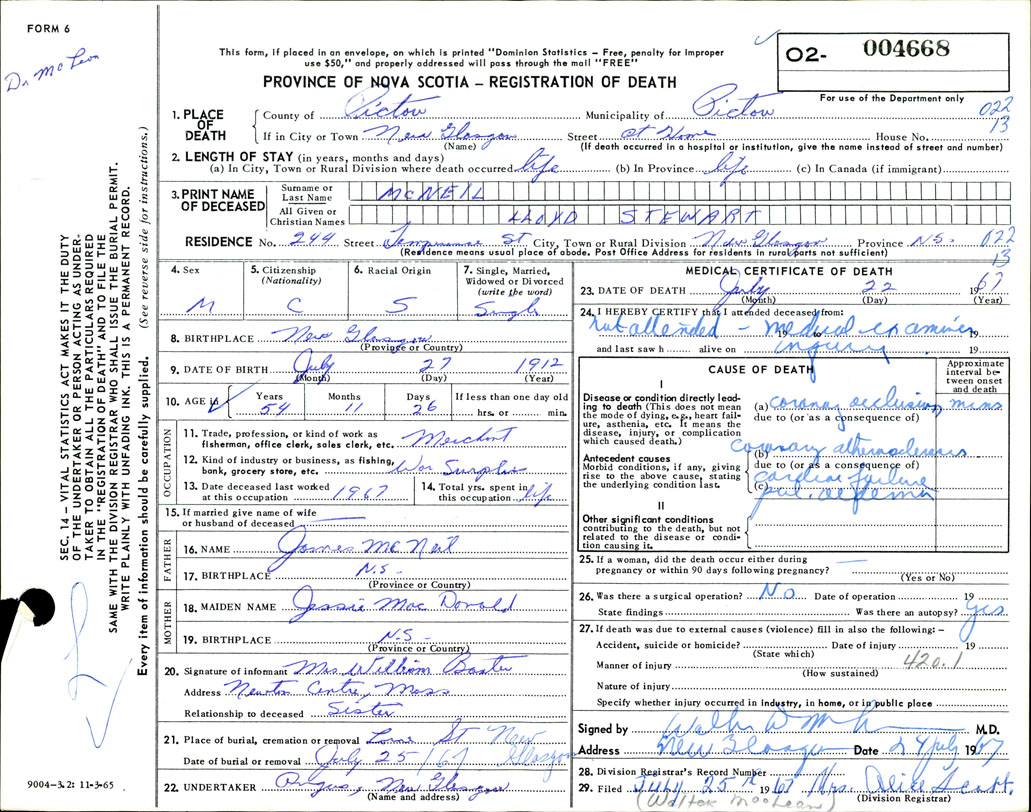 FORM 6
Dr McLean
This form, if placed in an envelope, on which is printed "Dominion Statistics – Free, penalty for improper
use $50," and properly addressed will pass through the mail "FREE"
O2- 004668
For use of the Department only
PROVINCE OF NOVA SCOTIA – REGISTRATION OF DEATH
022
13
1. PLACE OF DEATH
County of Pictou Municipality of Pictou
If in City or Town New Glasgow Street at Home House No.
(Name) (If death occurred in a hospital or institution, give the name instead of street and number)
2. LENGTH OF STAY (in years, months and days)
(a) In City, Town or Rural Division where death occurred life (b) In Province life (c) In Canada (if immigrant)
3. PRINT NAME OF DECEASED
Surname or Last Name MCNEIL
All Given or Christian Names LLOYD STEWART
RESIDENCE No. 244 Street Temperance St City, Town or Rural Division New Glasgow Province N.S. 022
13
(Residence means usual place of abode. Post Office Address for residents in rural parts not sufficient)
4. Sex M
5. Citizenship (Nationality) C
6. Racial Origin S
7. Single, Married, Widowed or Divorced (write the word) Single
8. BIRTHPLACE New Glasgow
(Province or Country)
9. DATE OF BIRTH July 27 1912
(Month) (Day) (Year)
10. AGE in Years 54 Months 11 Days 26 If less than one day old hrs. or min.
OCCUPATION
11. Trade, profession, or kind of work as fisherman, office clerk, sales clerk, etc. Merchant
12. Kind of industry or business, as fishing, bank, grocery store, etc. War Surplus
13. Date deceased last worked at this occupation 1967
14. Total yrs. spent in this occupation life
15. If married give name of wife or husband of deceased
FATHER
16. NAME James McNeil
17. BIRTHPLACE N.S.
(Province or Country)
MOTHER
18. MAIDEN NAME Jessie MacDonald
19. BIRTHPLACE N.S.
(Province or Country)
20. Signature of informant Mrs. William Baxter
Address Newton Centre, Mass
Relationship to deceased Sister
21. Place of burial, cremation or removal Lorne St New Glasgow
Date of burial or removal July 25 /67
22. UNDERTAKER Angus, New Glasgow
(Name and address)
MEDICAL CERTIFICATE OF DEATH
23. DATE OF DEATH July 22 1967
(Month) (Day) (Year)
24. I HEREBY CERTIFY that I attended deceased from:
Not attended – medical examiner 19
and last saw h alive on inquiry 19
CAUSE OF DEATH
Approximate interval between onset and death
I
Disease or condition directly leading to death (This does not mean the mode of dying, e.g., heart failure, asthenia, etc. It means the disease, injury, or complication which caused death.)
(a) coronary occlusion mins
due to (or as a consequence of)
coronary atherosclerosis
(b)
Antecedent causes
Morbid conditions, if any, giving rise to the above cause, stating the underlying condition last.
due to (or as a consequence of)
cardiac failure
(c) pul. oedema
II
Other significant conditions
contributing to the death, but not related to the disease or condition causing it.
25. If a woman, did the death occur either during pregnancy or within 90 days following pregnancy?
(Yes or No)
26. Was there a surgical operation? No Date of operation 19
State findings Was there an autopsy? yes
27. If death was due to external causes (violence) fill in also the following: –
Accident, suicide or homicide? Date of injury 19
(State which)
Manner of injury 420.1
(How sustained)
Nature of injury
Specify whether injury occurred in Industry, in home, or in public place
Signed by M.D.
Address New Glasgow Date 24 July 1967
28. Division Registrar's Record Number
29. Filed July 25th 1967 Mrs. Alice Scott
(Walter MacLean) (Division Registrar)
SEC. 14 – VITAL STATISTICS ACT MAKES IT THE DUTY
OF THE UNDERTAKER OR PERSON ACTING AS UNDER-
TAKER TO OBTAIN ALL THE PARTICULARS REQUIRED
IN THE "REGISTRATION OF DEATH" AND TO FILE THE
SAME WITH THE DIVISION REGISTRAR WHO SHALL ISSUE THE BURIAL PERMIT.
WRITE PLAINLY WITH UNFADING INK. THIS IS A PERMANENT RECORD.
Every item of information should be carefully supplied. (See reverse side for instructions.)
9004-3.2: 11-3-65